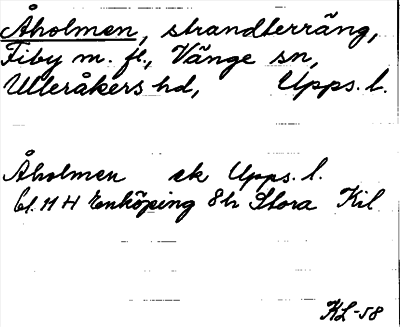 Åholmen, strandterräng,
Fiby m. fl., Vänge sn,
Ulleråkers hd, Upps. l.
Åholmen ek Upps. l.
bl. 11 H Enköping 8 h Stora Kil
KL-58